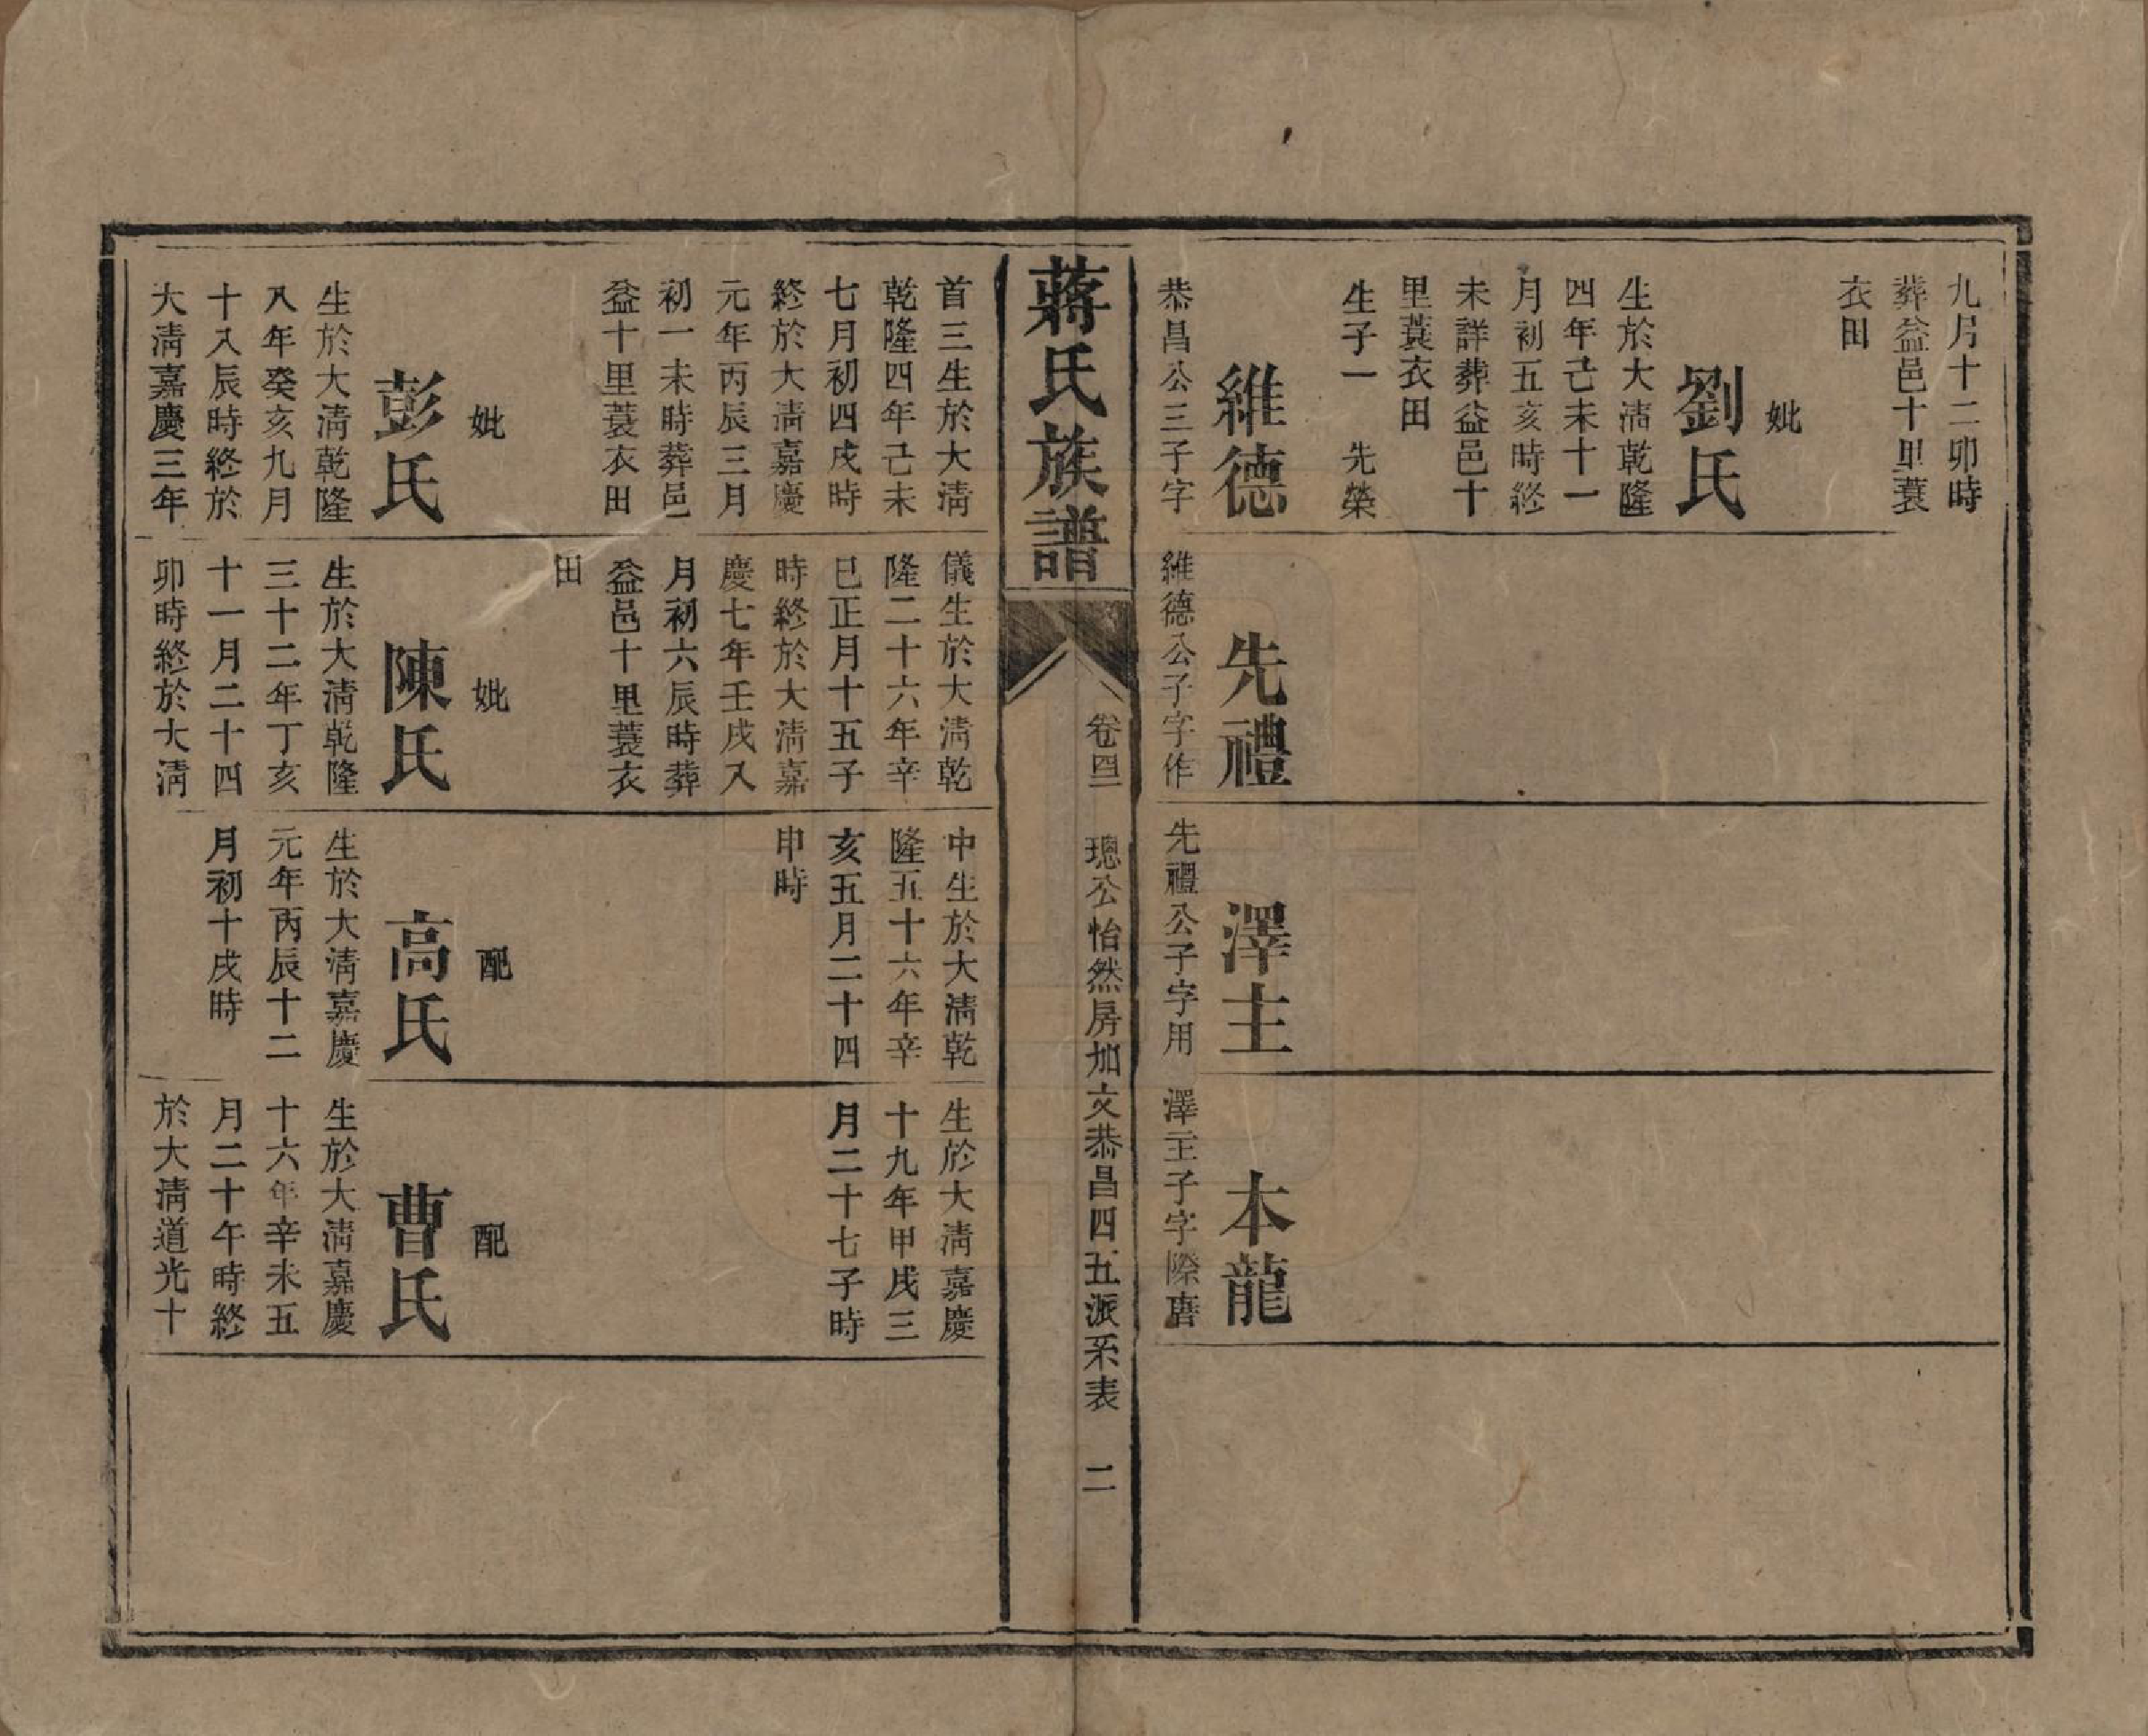 九月十二卯時
葬益邑十里蓑
衣田
妣
劉氏
生於大淸乾隆
四年己未十一
月初五亥時終
未詳葬益邑十
里蓑衣田
生子一　先榮
維德
恭昌公三子字
先禮
維德公子字作
澤主
先禮公子字用
本龍
澤主子字際唐
蔣氏族譜
卷四二　璁公怡然房加文恭昌四五派系表　二
首三生於大淸
乾隆四年己未
七月初四戌時
終於大淸嘉慶
元年丙辰三月
初一未時葬邑
益十里蓑衣田
妣
彭氏
生於大淸乾隆
八年癸亥九月
十八辰時終於
大淸嘉慶三年
儀生於大淸乾
隆二十六年辛
巳正月十五子
時終於大淸嘉
慶七年壬戌八
月初六辰時葬
益邑十里蓑衣
田
妣
陳氏
生於大淸乾隆
三十二年丁亥
十一月二十四
卯時終於大淸
中生於大淸乾
隆五十六年辛
亥五月二十四
申時
配
高氏
生於大淸嘉慶
元年丙辰十二
月初十戌時
生於大淸嘉慶
十九年甲戌三
月二十七子時
配
曹氏
生於大淸嘉慶
十六年辛未五
月二十午時終
於大淸道光十